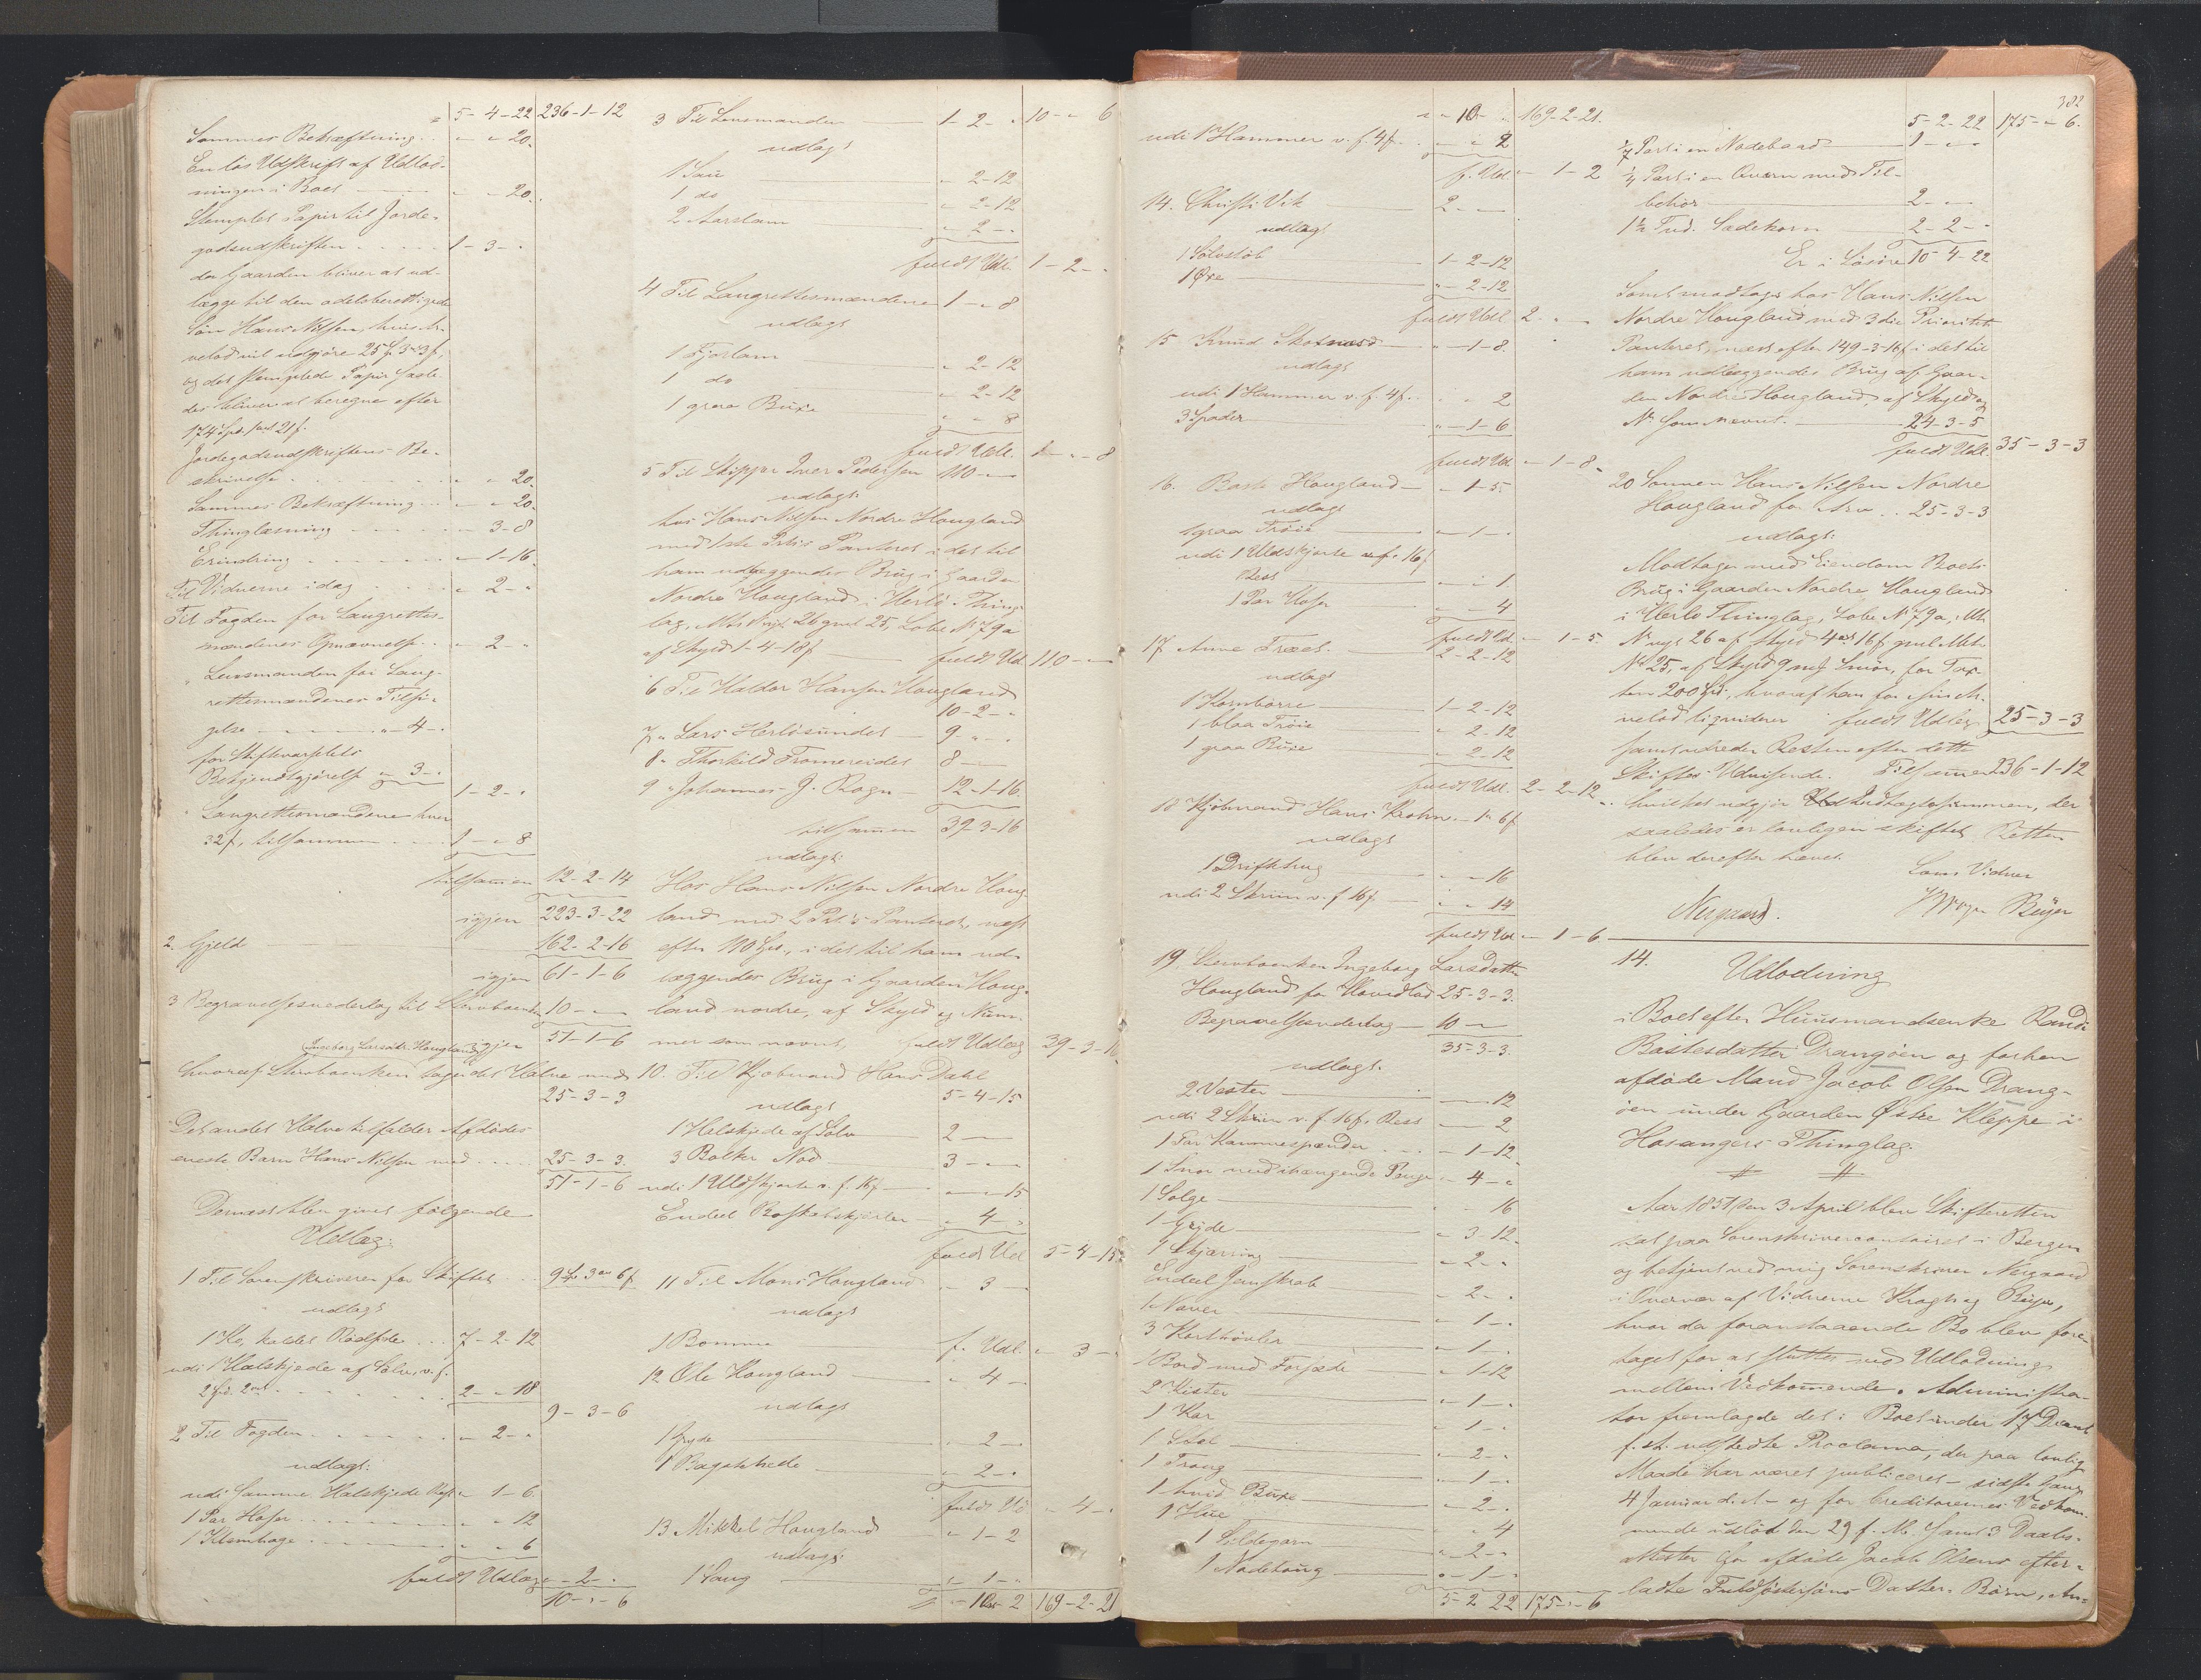 5-4-22 236-1-12
Sammes Bekræftning . . " - " 20.
En løs Udskrift af Udlod-
ningen i Boet " - " 20.
Stemplet Papir til Jorde-
godsudskriften . . . . . 1-3-"
da Gaarden bliver at ud-
lægge til den odelsberettigede
Søn Hans Nilsen, hvis Ar-
velod vil udgjøre 25 Sp 3 ort 3 s,
og det stemplede Papir saale-
des bliver at beregne efter
174 Spd. 1 ort 21 s.
Jordegodsudskriftens Be-
skrivelse . . . . . . " " 20.
Sammes Bekræftning . . " " 20.
Thinglæsning . . . . " 3-8
Erindring . . . . . . " 1-16.
Til Vidnerne idag . . . " 2-"
Til Fogden for Laugrettes-
mændenes Opnævnelse . . " 2-"
" Lensmanden for Laug-
rettesmændenes Tilsi-
gelse "-4-"
for Skiftevarslets
Bekjendtgjørelse "-3-"
1-2-"
" Laugrettesmændene hver
32 s, tilsammen . . . . 1-"-8
tilsammen 12-2-14
igjen 223-3-22
2. Gjeld 162-2-16
igjen 61-1-6
3 Begravelsesvederlag til Stervboenken 10-"-"
igjen 51-1-6
Ingeborg Larsdtr. Hougland
hvoraf Stervboenken tager det Halve med
25-3-3
Det andet Halve tilfalder Afdødes
eneste Barn Hans Nilsen med . . . 25-3-3.
51-1-6
Dernæst blev givet følgende
Udlæg:
1 Til Sorenskriveren for Skiftet . . 9 Sp 3 ort 6 s
udlagt
1 Ko, kaldet Rødside . . . 7-2-12
udi 1 Halskjede af Sølv, v. f.
2 Spd. 2 ort . . . . . . 2-"-18
9-3-6
2 Til Fogden . . . . . . " 2-"
udlagt:
udi samme Halskjede Rest " 1-6.
1 Par Hoser . . . . . . " " 12
1 Klemhage . . . . . . " " 6
fuldt Udlæg "-2-"
10-"-6
3 Til Lensmanden 1-2-" 10-"-6
udlagt
1 Sau " 2-12
1 do " 2-12
2 Aarslam " 2-"
fuldt Udl. 1-2-"
4 Til Laugrettesmændene 1-"-8
udlagt
1 Fjorlam " 2-12
1 do " 2-12
1 graa Buxe " " 8
fuldt Udl. 1-"-8
5 Til Skipper Iver Pedersen 110-"-"
udlagt:
hos Hans Nilsen Nordre Hougland
med 1ste Prts Panteret i det til
ham udlæggendes Brug i Gaarden
Nordre Hougland i Herlø Thing-
lag, Mts N nyt 26 gml 25, Løbe N 79a
af Skyld 1-4-18 s fuldt Ud. 110-"-"
6 Til Haldor Hansen Hougland
10-2-"
7 " Lars Herløsundet 9-"-"
8 " Thorkild Tromereidet 8-"
9 " Johannes J. Rogn 12-1-16.
tilsammen 39-3-16
udlagt:
Hos Hans Nilsen Nordre Houg-
land med 2 Prt's Panteret, næst
efter 110 Spd., i det til ham ud-
læggendes Brug i Gaarden Houg-
land nordre, af Skyld og Num-
mer som nævnt, fuldt Udlæg 39-3-16.
10. Til Kjøbmand Hans Dahl
5-4-15
udlagt
1 Halskjede af Sølv 2-"
3 Bolker Nød 3-"-"
udi 1 Uldskjorte v. f. 16 s "-"-15
Endeel Boskabskjørler " 4-"
fuldt Ud 5-4-15.
11 Til Mons Hougland " 3-
udlagt
1 Bomme f. Udl. " 3-"
12 Ole Hougland " 4-
udlagt
1 Gryde " 2-"
1 Bagstehede " 2-"
fuldt Ud " 4-"
13 Mikkel Hougland " 1-2
udlagt:
1 Saug " 1-"
" 10-2 169-2-21
382
" " 10- " 169-2-21.
udi 1 Hammer v. f. 4 s. . " " 2
f. Ud. " 1-2
14. Christi Vik 2-"
udlagt
1 Sølvstøb 1-2-12
1 Øxe "-2-12
fuldt Udl 2-"
15 Knud Skotnæs " -1-8.
udlagt
udi 1 Hammer v. f. 4 s. . " 2
3 Spader "-1-6
fuldt Ud "-1-8.
16. Baste Hougland " 1-5.
udlagt
1 graa Trøie " 1-"
udi 1 Uldskjorte v. f. 16 s
Rest "-" 1
1 Par Hoser "-4
fuldt Ud " 1-5.
17 Anne Træet. 2-2-12
udlagt
1 Kornbørre 1-2-12
1 blaa Trøie " 2-12
1 graa Buxe "-2-12
fuldt Udl. 2-2-12.
18 Kjøbmand Hans Krohn " 1 " 6 s
udlagt
1 Drifttrug "-16
udi 2 Skrin v. f 16 s " " 14
fuldt Ud " 1-6
19. Stervboenken Ingeborg Larsdatter
Hougland for Hovedlod 25-3-3.
Begravelsesvederlag 10-"
35-3-3.
udlagt.
2 Vester "-12
udi 2 Skrin v. f. 16 s. Rest "-2
1 Par Kammespænder . . . "-1-12.
1 Snor med ihængende Penge "-4-"
1 Sølge " - 16
1 Gryde " 3-12.
1 Skjæring "-2-"
Endeel Jernskrab "-2-"
1 Naver "-1-"
3 Korthøvler "-1-"
1 Bord med Forsæde " 1-12
2 Kister "-1-"
1 Kar "-1-"
1 Stol "-2-"
1 Traug "-1-"
1 hvid Buxe "-2-"
1 Hue " " 4
1 Sildegarn "-2-"
1 Nodetoug "-1-"
5-2-22 175-"-6
5-2-22 175-"-6.
1/7 Part i en Nodebaad 1-"-"
1/4 Part i en Qværn med Til-
behør 2-"-"
1½ Tnd. Sædekorn 2-2-"
Er i Løsøre 10-4-22
Samt modtager hos Hans Nilsen
Nordre Hougland med 3die Prioritets
Panteret, næst efter 149-3-16 s i det til
ham udlæggendes Brug af Gaar-
den Nordre Hougland, af Skyld og
N. som nævnt. 24-3-5
fuldt Udl. 35-3-3
20 Sønnen Hans Nilsen Nordre
Hougland for Arv . . 25-3-3
udlagt:
Modtager med Eiendom Boets
Brug i Gaarden Nordre Hougland
i Herlø Thinglag, Løbe N 79a, Mt.
N nyt 26 af Skyld 4 ort 16 s gml Mt.
N 25, af Skyld 9 mrk Smør, for Tax-
ten 200 Spd, hvoraf han for sin Ar-
velod liqviderer fuldt Udlæg 25-3-3
samt udreder Resten efter dette
Skiftes Udvisende. Tilsammen 236-1-12
hvilket udgjør Indtægtssummen, der
saaledes er lovligen skiftet. Retten
blev derefter hævet.
Som Vidner
Nergaard. Krogh Bøyer
14. Udlodning
i Boet efter Huusmandsenke Randi
Bastesdatter Drangøen og forhen
afdøde Mand Jacob Olsen Drang-
øen under Gaarden Østre Kleppe i
Hosangers Thinglag.
Aar 1851 den 3 April blev Skifteretten
sat paa Sorenskrivercontoiret i Bergen
og betjent ved mig Sorenskriver Nergaard
i Overvær af Vidnerne Krogh og Bøyer,
hvor da foranstaaende Bo blev fore-
taget for at sluttes med Udlodning
mellem Vedkommende. Administra-
tor fremlagde det i Boet under 17 Decembr
f. A. udstedte Proclama, der paa lovlig
Maade har været publiceret - sidste Gang
4 Januar d. A. - og for Creditorernes Vedkom-
mende udløb den 29 f. M. samt 3 Daabs-
attester for afdøde Jacob Olsens efter-
ladte Fuldsøsters Datter-Børn, An-